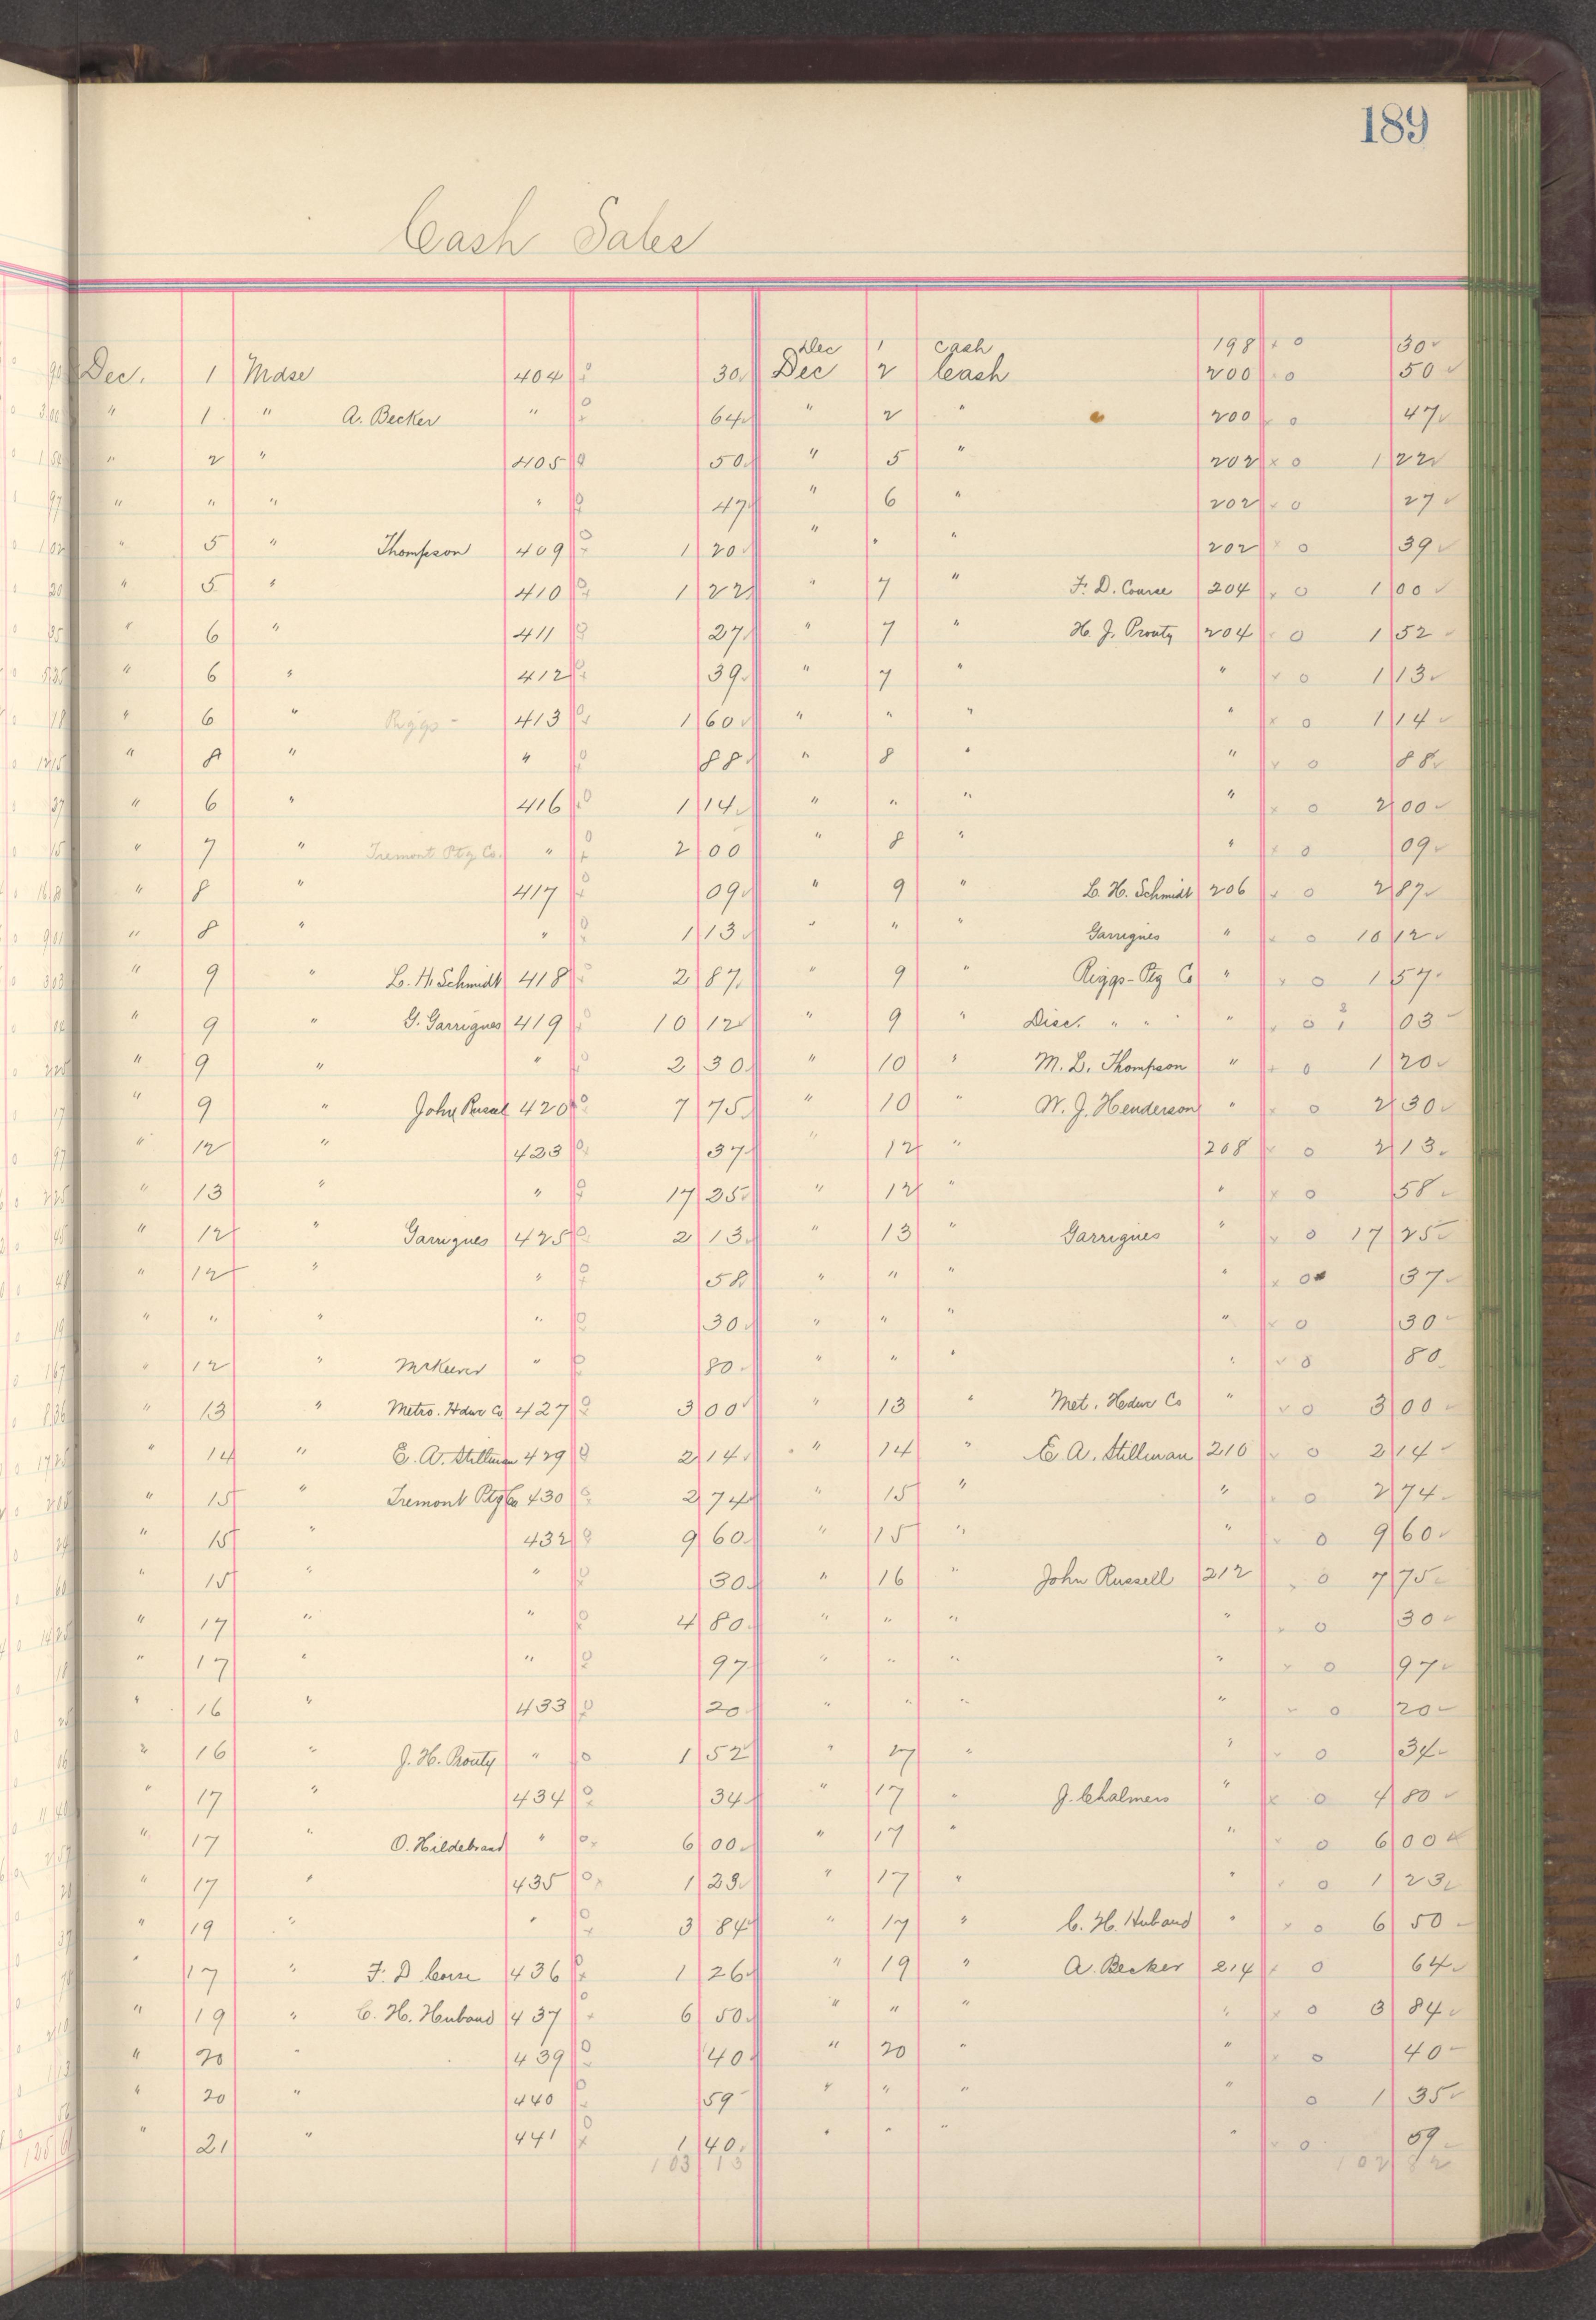 189
Cash Sales
Dec 1 cash 198 x o 30
Dec. 1 Mdse 404 o 30 Dec 2 Cash 200 x o 50
" 1 " A. Becker " o 64 " 2 " 200 x o 47
" 2 " 405 o 50 " 5 " 202 x o 1 22
" " " " o 47 " 6 " 202 x o 27
" 5 " Thompson 409 o 1 20 " " " 202 x o 39
" 5 " 410 o 1 22 " 7 " F. D. Course 204 x o 1 00
" 6 " 411 o 27 " 7 " H. J. Prouty 204 x o 1 52
" 6 " 412 o 39 " 7 " " x o 1 13
" 6 " Riggs - 413 o 1 60 " " " " x o 1 14
" 8 " " o 88 " 8 " " x o 88
" 6 " 416 o 1 14 " " " " x o 2 00
" 7 " Tremont Ptg Co. " o 2 00 " 8 " " x o 09
" 8 " 417 o 09 " 9 " L. H. Schmidt 206 x o 2 87
" 8 " " o 1 13 " " " Garrigues " x o 10 12
" 9 " L. H. Schmidt 418 o 2 87 " 9 " Riggs-Ptg Co " x o 1 57
" 9 " G. Garrigues 419 o 10 12 " 9 " Disc. " " " " x o 03
" 9 " " o 2 30 " 10 " M. L. Thompson " x o 1 20
" 9 " John Russel 420 o 7 75 " 10 " W. J. Henderson " x o 2 30
" 12 " 423 o 37 " 12 " 208 x o 2 13
" 13 " " o 17 25 " 12 " " x o 58
" 12 " Garrigues 425 o 2 13 " 13 " Garrigues " x o 17 25
" 12 " " o 58 " " " " x o 37
" " " " o 30 " " " " x o 30
" 12 " McKeever " o 80 " " " " x o 80
" 13 " Metro. Hdwr Co 427 o 3 00 " 13 " Met. Hdwr Co " x o 3 00
" 14 " E. A. Stillman 429 o 2 14 " 14 " E. A. Stillman 210 x o 2 14
" 15 " Tremont Ptg Co 430 o 2 74 " 15 " " x o 2 74
" 15 " 432 o 9 60 " 15 " " x o 9 60
" 15 " " o 30 " 16 " John Russell 212 x o 7 75
" 17 " " o 4 80 " " " " x o 30
" 17 " " o 97 " " " " x o 97
" 16 " 433 o 20 " " " " x o 20
" 16 " J. H. Prouty " o 1 52 " 17 " " x o 34
" 17 " 434 o 34 " 17 " J. Chalmers " x o 4 80
" 17 " O. Hildebrand " o x 6 00 " 17 " " x o 6 00
" 17 " 435 o x 1 23 " 17 " " x o 1 23
" 19 " " o x 3 84 " 17 " C. H. Huband " x o 6 50
" 17 " F. D Corse 436 o x 1 26 " 19 " A. Becker 214 x o 64
" 19 " C. H. Huband 437 o x 6 50 " " " " x o 3 84
" 20 " 439 o 40 " 20 " " x o 40
" 20 " 440 o 59 " " " " o 1 35
" 21 " 441 o x 1 40 " " " " x o 59
103 13 102 82